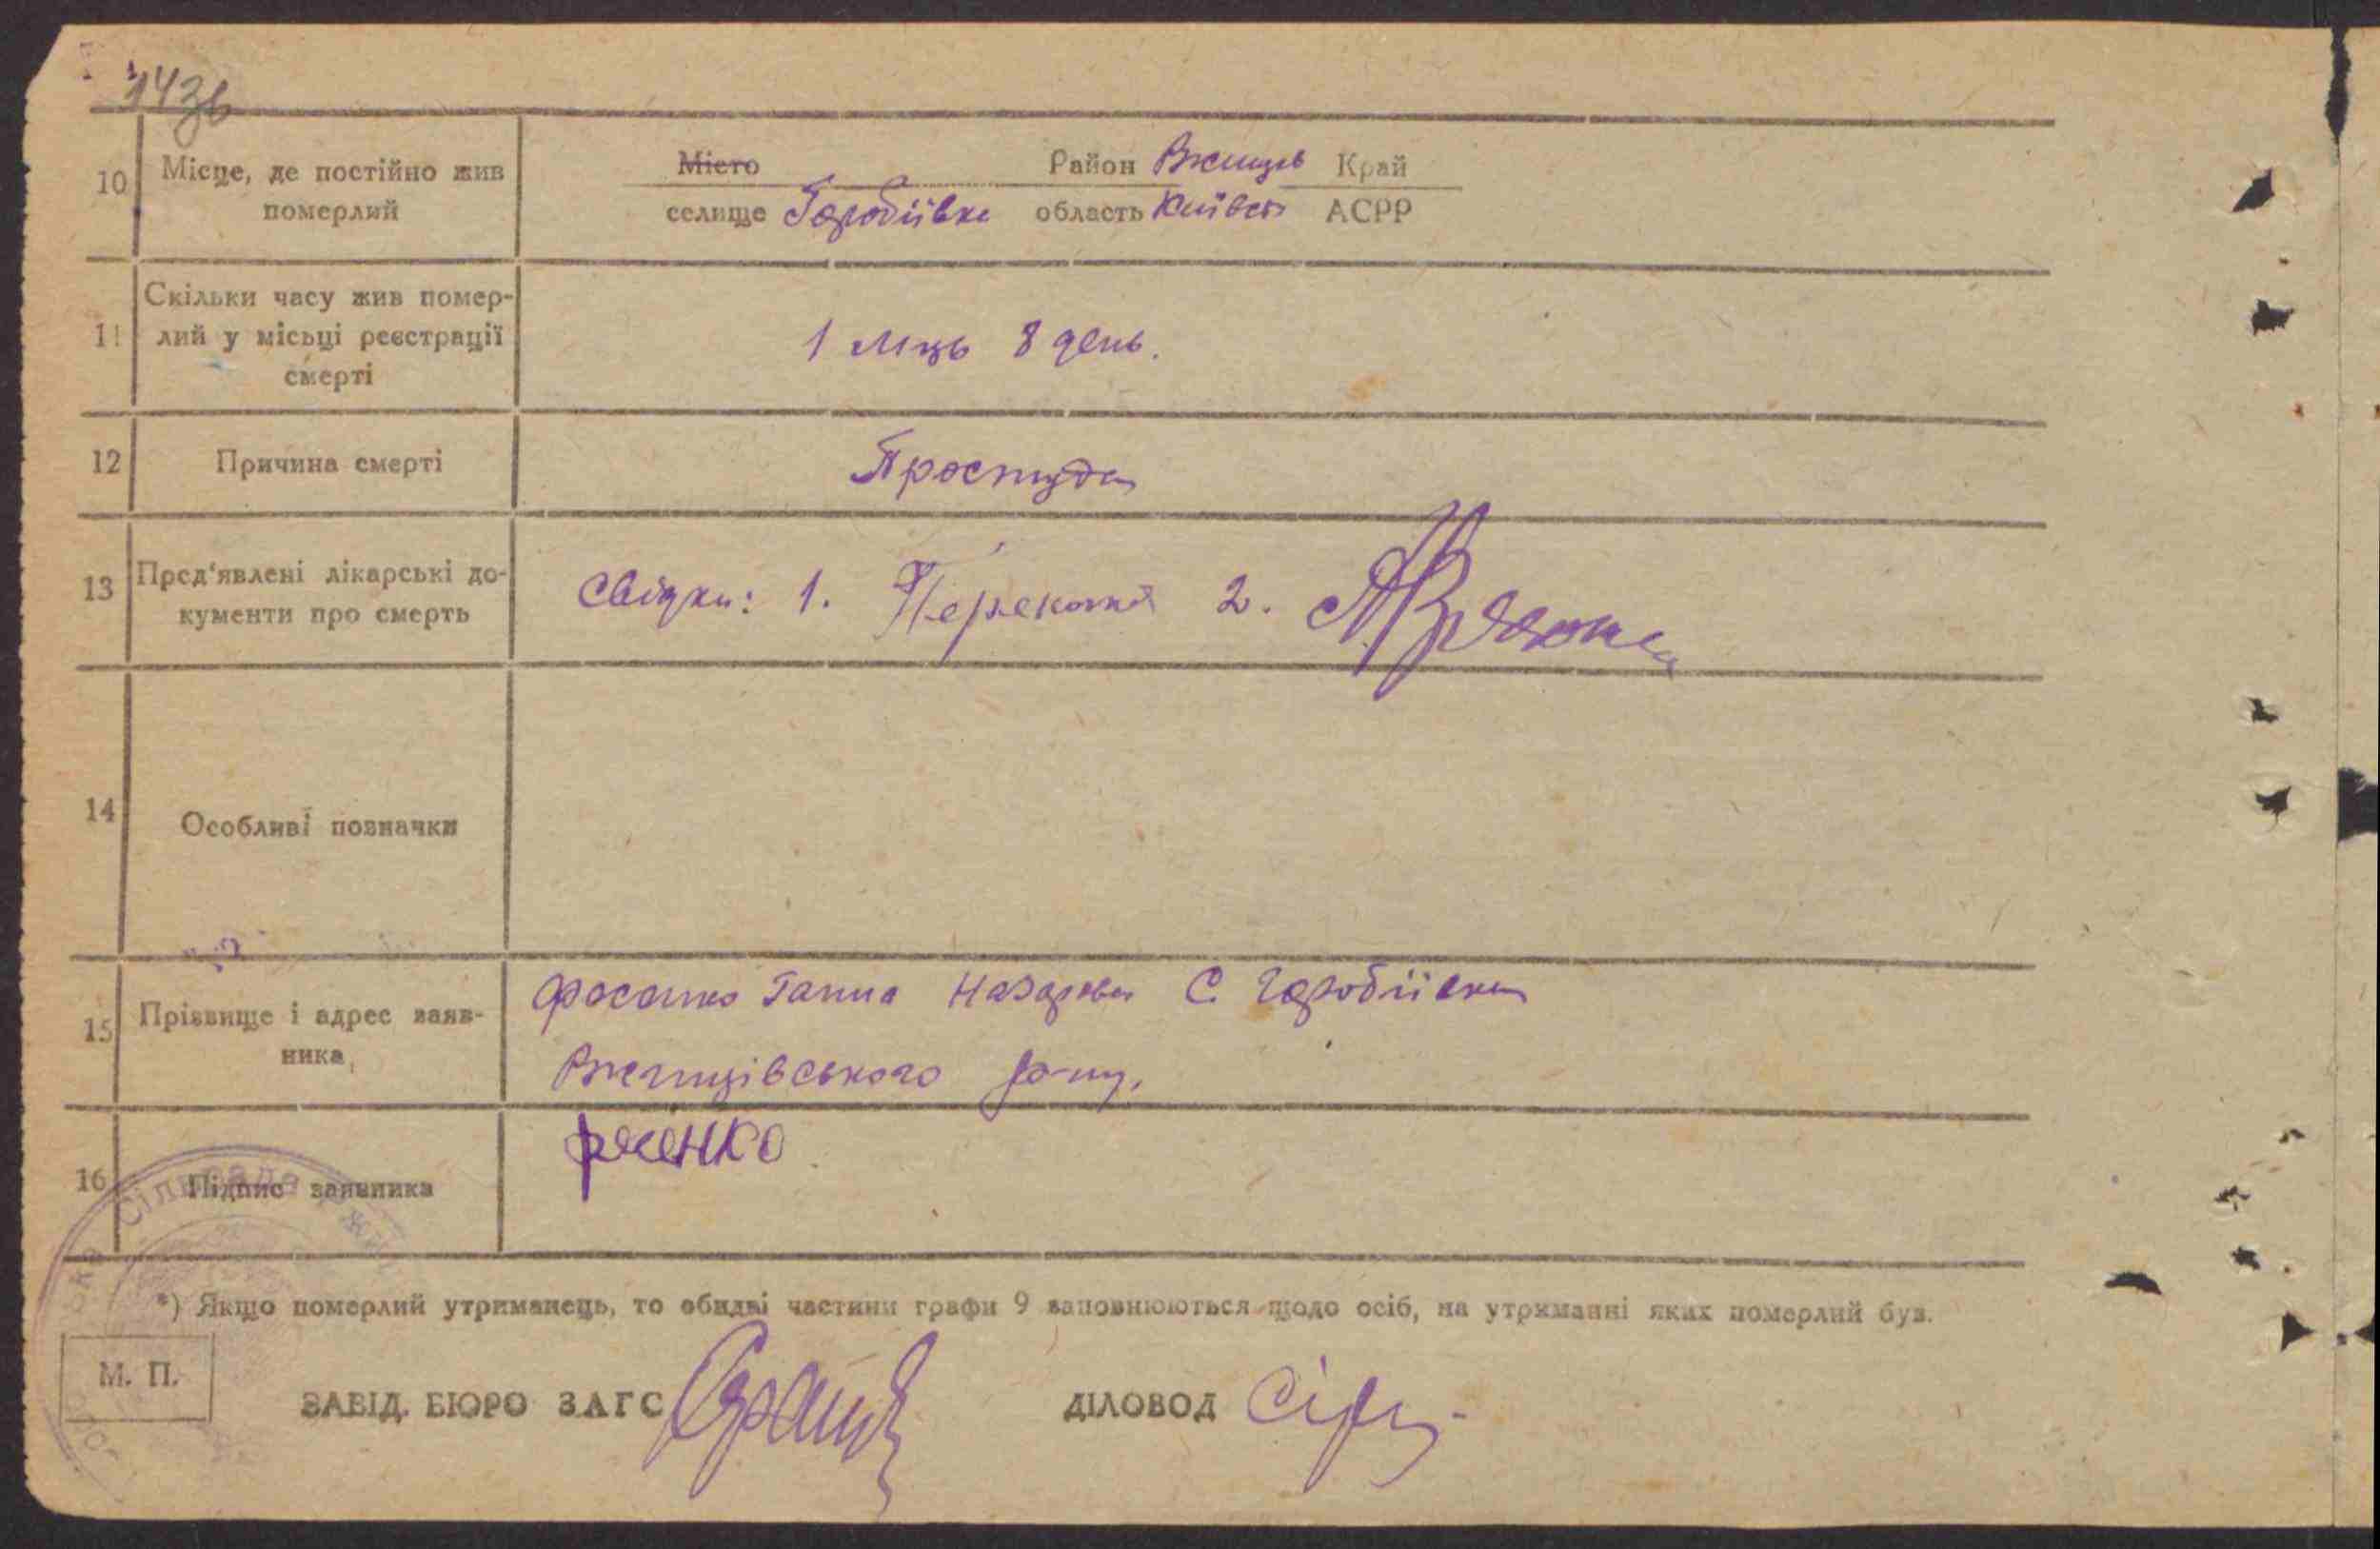 143б
10 Місце, де постійно жив
померлий
Місто Район Ржищів Край
селище Горобіївка область Київсь АСРР
11 Скільки часу жив помер-
лий у місьці реєстрації
смерті
1 м-ць 8 день.
12 Причина смерті Простуда
13 Пред'явлені лікарські до-
кументи про смерть
Свідки: 1. 2.
14 Особливі позначки
15 Прізвище і адрес заяв-
ника
Ганна Назарівна С. Горобіївка
Ржищівського р-ну.
16 Підпис заявника
Сільрада Ржи
*) Якщо померлий утриманець, то обидві частини графи 9 заповнюються щодо осіб, на утриманні яких померлий був.
М. П.
ЗАВІД. БЮРО ЗАГС ДІЛОВОД